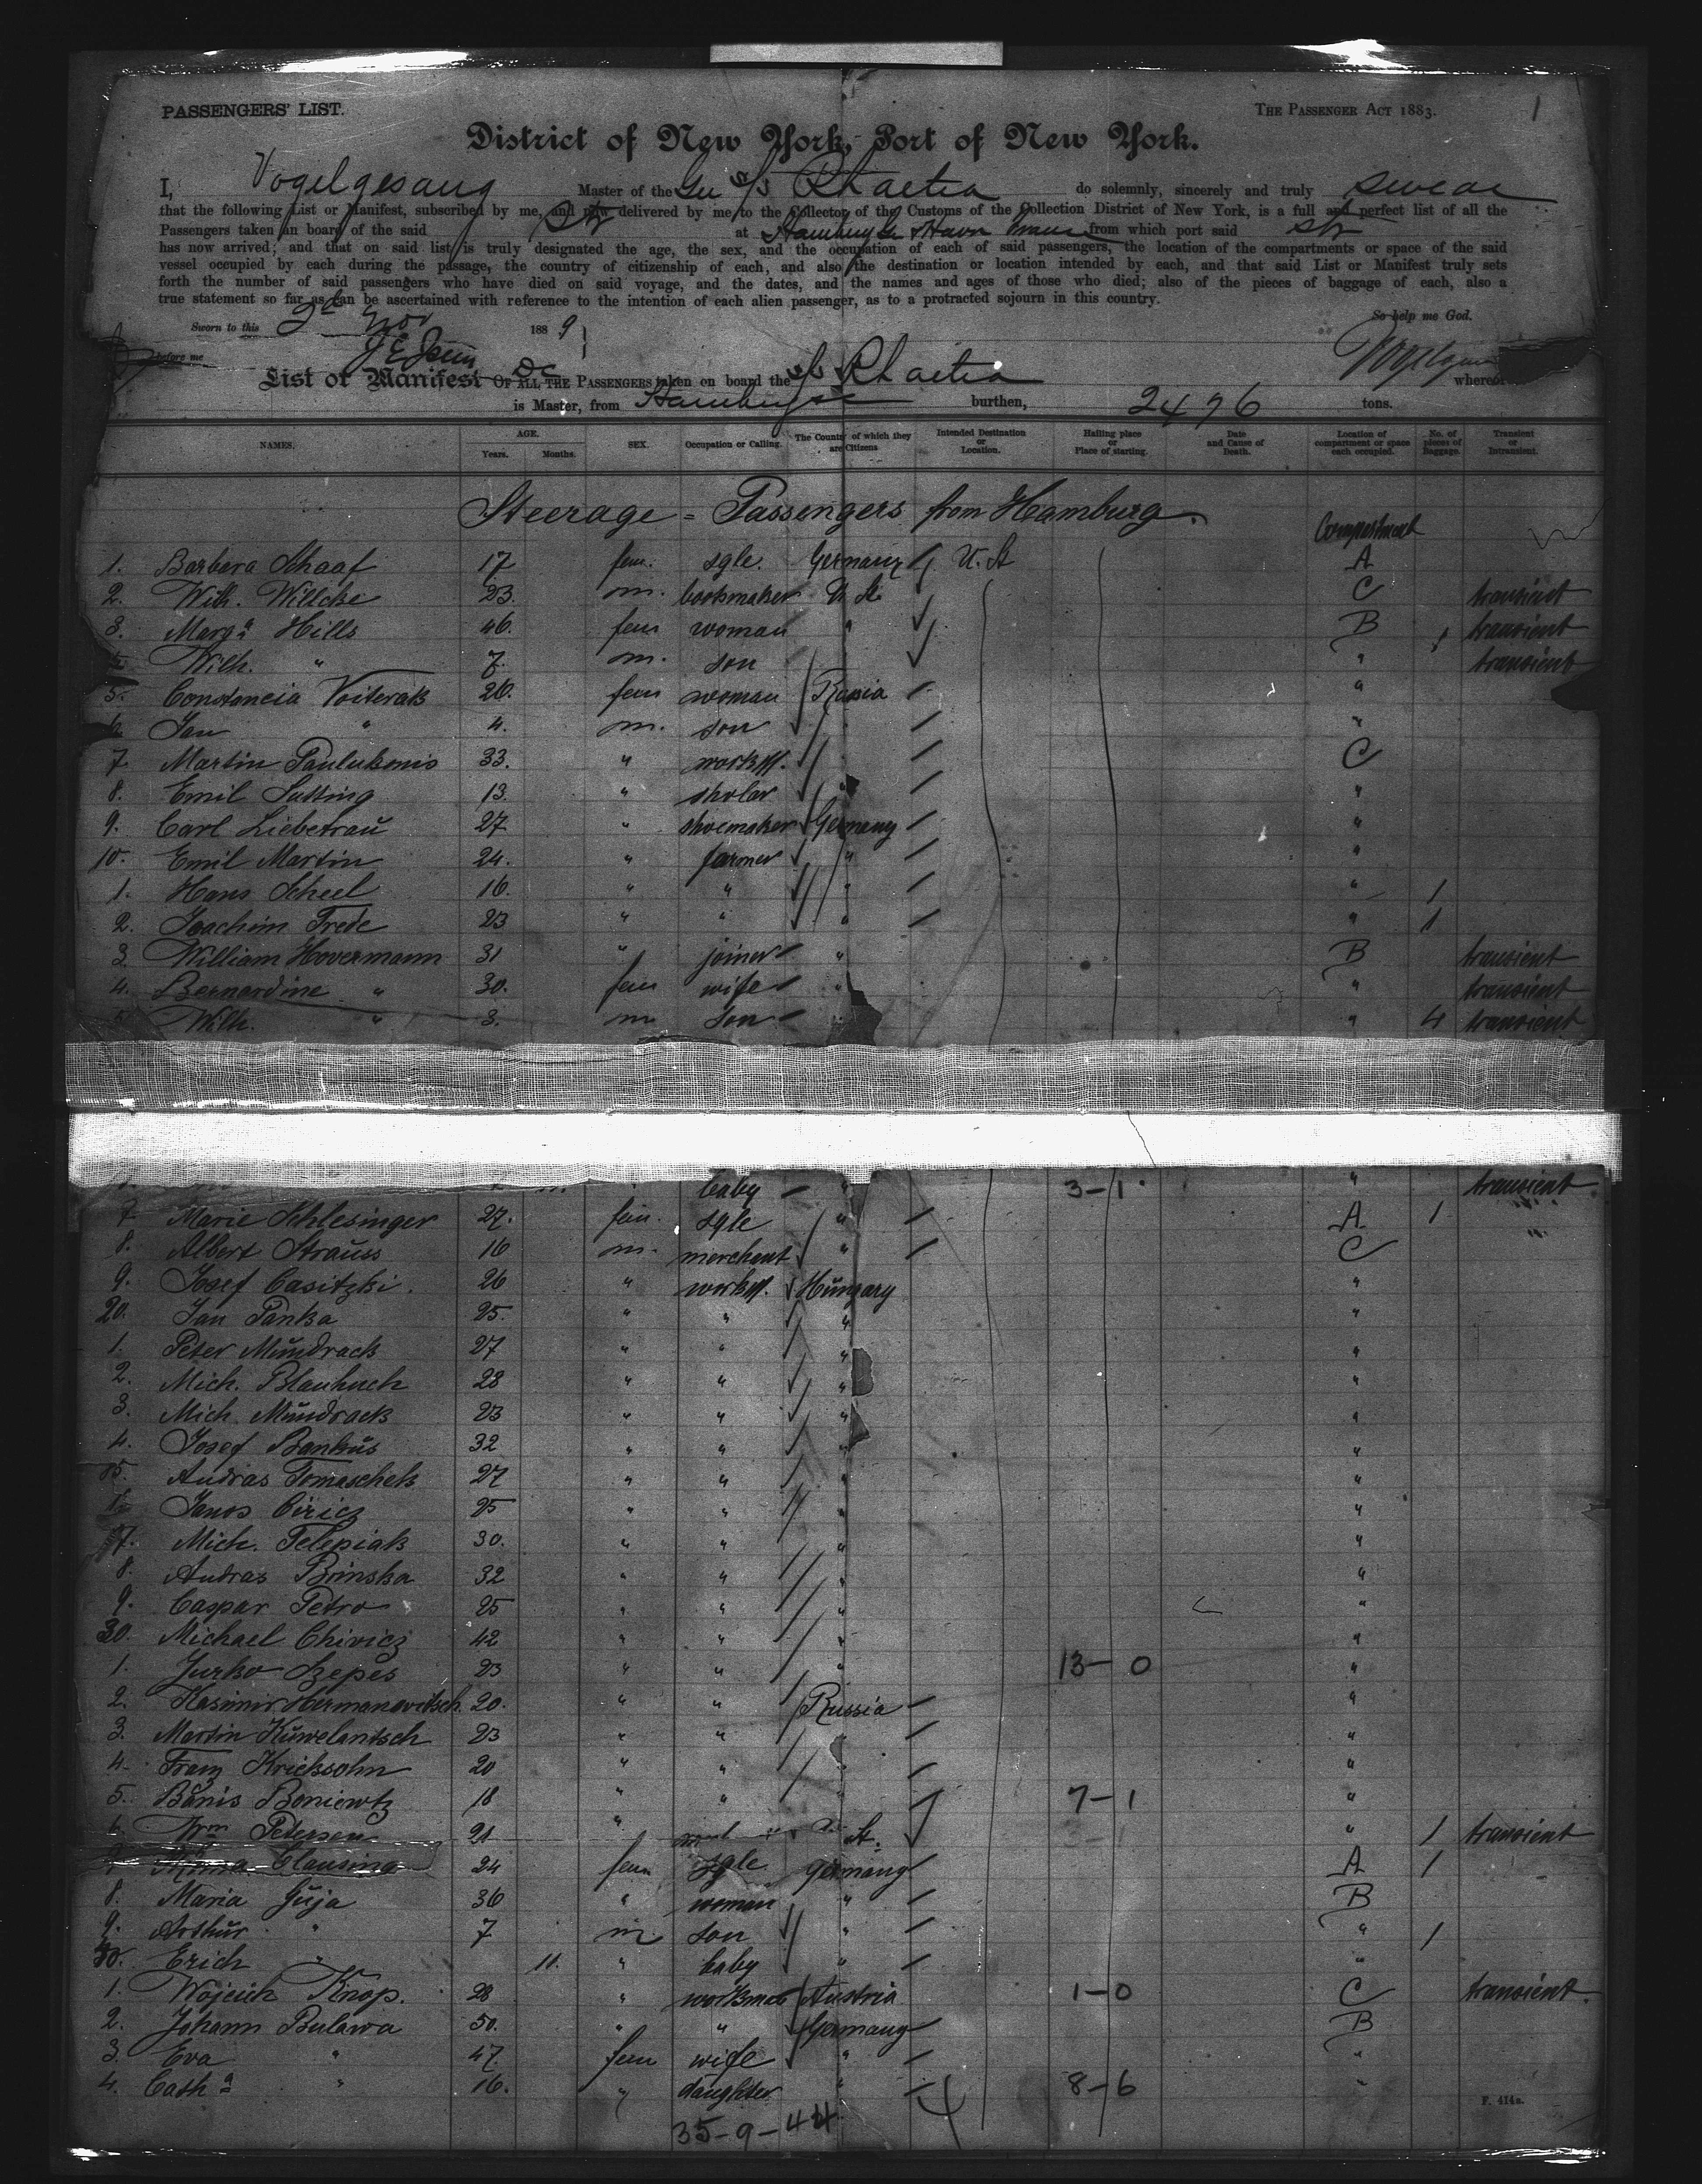 PASSENGERS' LIST. THE PASSENGER ACT 1883. 1
District of New York, Port of New York.
I, Vogelgesang Master of the Ger S/S Rhaetia do solemnly, sincerely and truly swear
that the following List or Manifest, subscribed by me, and now delivered by me to the Collector of the Customs of the Collection District of New York, is a full and perfect list of all the
Passengers taken on board of the said Str at Hamburg & Havre France from which port said Str
has now arrived; and that on said list is truly designated the age, the sex, and the occupation of each of said passengers, the location of the compartments or space of the said
vessel occupied by each during the passage, the country of citizenship of each, and also the destination or location intended by each, and that said List or Manifest truly sets
forth the number of said passengers who have died on said voyage, and the dates, and the names and ages of those who died; also of the pieces of baggage of each, also a
true statement so far as can be ascertained with reference to the intention of each alien passenger, as to a protracted sojourn in this country.
Sworn to this 2d Nov 1889 So help me God.
before me
List or Manifest OF ALL THE PASSENGERS taken on board the S/S Rhaetia whereof
is Master, from Hamburg burthen, 2476 tons.
NAMES. AGE. Years. Months. SEX. Occupation or Calling. The Country of which they are Citizens Intended Destination or Location. Hailing place or Place of starting. Date and Cause of Death. Location of compartment or space each occupied. No. of pieces of Baggage. Transient or Intransient.
Steerage = Passengers from Hamburg.
Compartment
1. Barbera Schaaf 17 fem. sgle. Germany U. St A
2. Wilh. Willcke 23. m. bookmaker U. St. C transient
3. Marga Hills 46. fem woman " B 1 transient
Wilh. " 7. m. son " transient
5. Constancia Voiterak 26. fem woman Russia "
6. Jan " 4. m. son "
7. Martin Paulukonis 33. " workm. C
8. Emil Sutting 13. " sholar " "
9. Carl Liebetrau 27 " shoemaker Germany "
10. Emil Martin 24. " farmer " "
1. Hans Scheel 16. " " " " 1
2. Joachim Trede 23 " " " " 1
3. William Hovermann 31 " joiner " B transient
4. Bernardine " 30. fem wife " " transient
5. Wilh. " 3. m son " 4 transient
baby " 3-1 " transient
7. Marie Schlesinger 27. fem. sgle " A 1
8. Albert Strauss 16 m. merchant " C
9. Josef Casitzki. 26 " workm. Hungary "
20. Jan Panka 25. " " " "
1. Peter Mundrack 27 " " " "
2. Mich. Blauhuch 28 " " " "
3. Mich. Mundrack 23 " " " "
4. Josef Bankus 32 " " " "
25. Andras Tomaschek 27 " " " "
6. Janos Ciricz 25 " " " "
7. Mich. Telepiak 30. " " " "
8. Andras Brinska 32 " " " "
9. Caspar Petro 25 " " " "
30. Michael Chivicz 42 " " " "
1. Jurko Szepes 23 " " " 13-0 "
2. Kasimir Hermanowitsch 20. " " Russia "
3. Martin Kuwelantsch 23 " " " "
4. Franz Kricksohn 20 " " " "
5. Banis Boniewtz 18 " " " 7-1 "
6. Wm Petersen 21 " St. 3-1 " 1 transient
7. Minna Clausing 24 fem sgle Germany A 1
8. Maria Guja 36 " woman " B
9. Arthur " 7 m son " " 1
40. Erich " 11. " baby " "
1. Wojcich Knop. 28 " workman Austria 1-0 C transient.
2. Johann Bulawa 50. " " Germany B
3. Eva " 47. fem wife " "
4. Catha " 16. " daughter " 8-6 "
F. 414a.
35-9-44